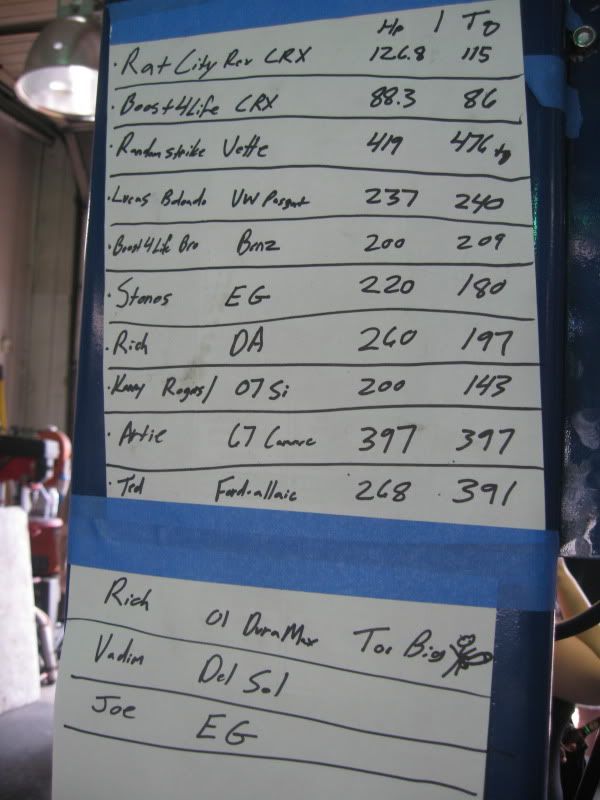 Hp | Tq
· Rat City Rex CRX 126.8 115
· Boost4Life CRX 88.3 86
· Randumstrike Vette 419 476 tq
· Lucas VW 237 240
· Boost4Life Bro Benz 200 209
· Stonos EG 220 180
· Rich DA 260 197
· Kenny Rogers/ 07 Si 200 143
· Artie 67 397 397
· Ted 268 391
Rich 01 DuraMax Too Big
Vadim Del Sol
Joe EG